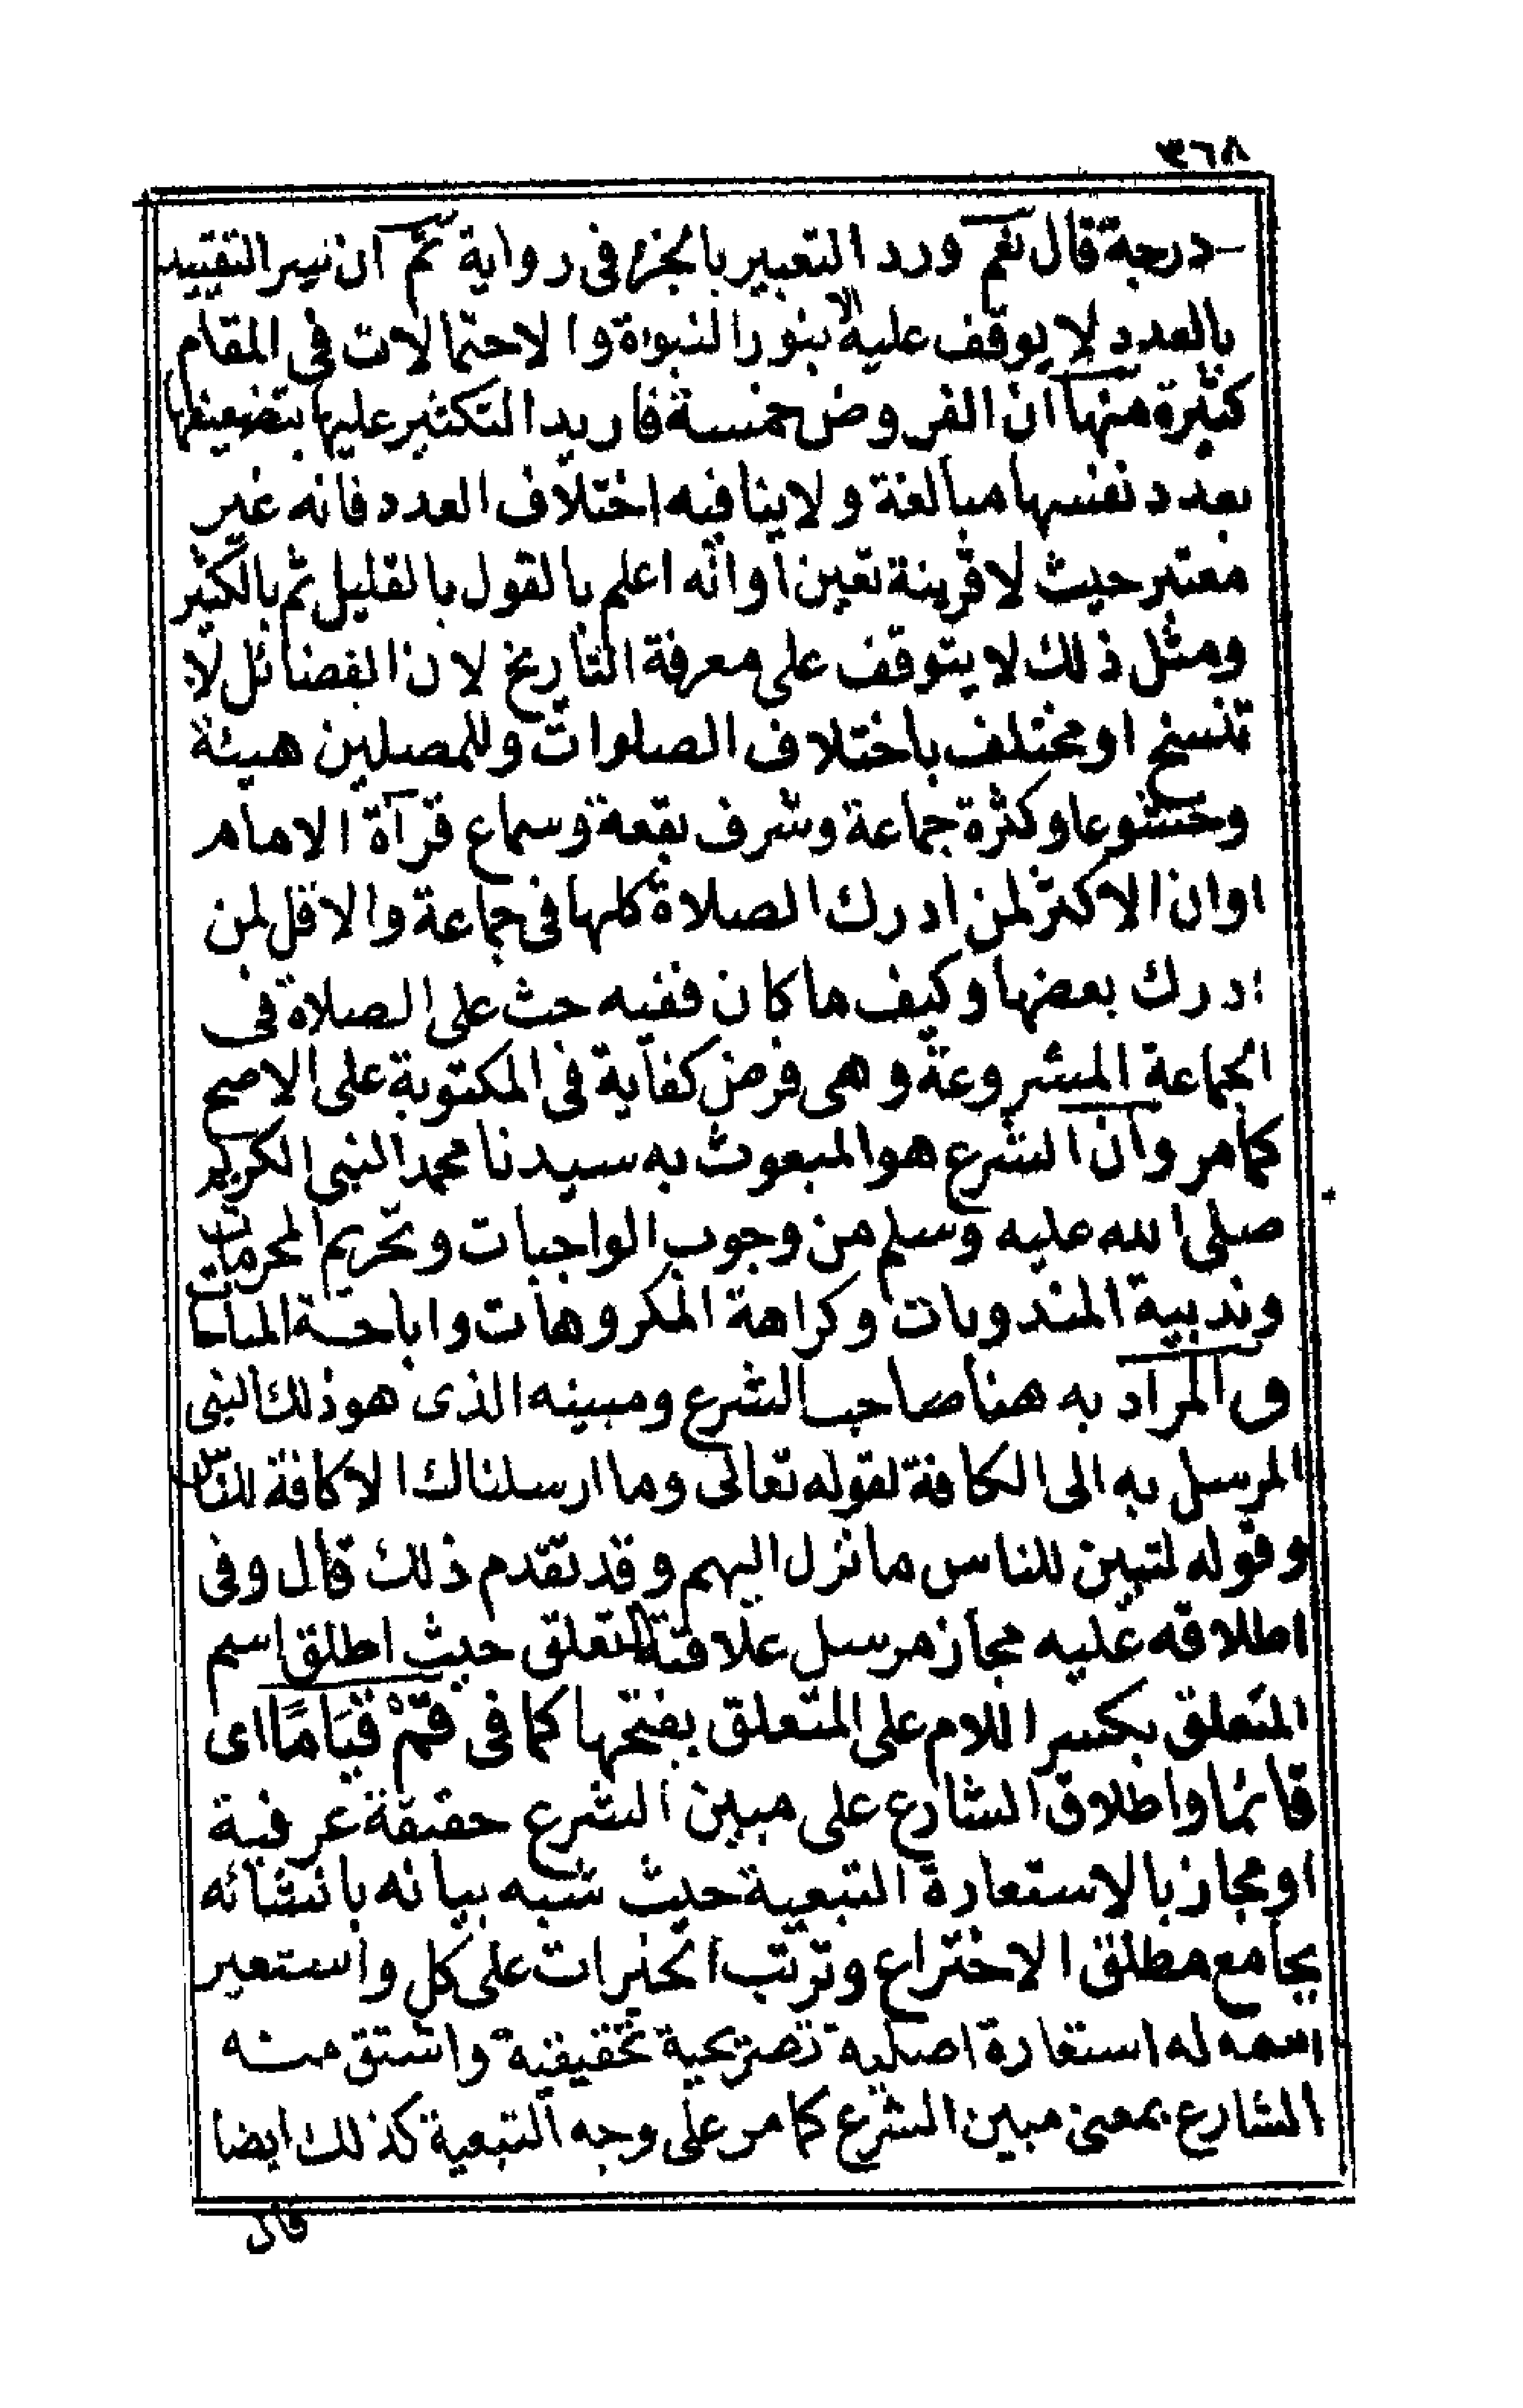 ٣٦٨
درجة قال نعم ورد التعبير بالجزء فى رواية ثم ان سر التقييد
بالعدد لا يوقف عليه الا بنور النبوة والاحتمالات فى المقام
كثيرة منها ان الفروض خمسة فاريد التكثير عليها بتضعيفها
بعدد نفسها مبالغة ولا ينافيه اختلاف العدد فانه غير
معتبر حيث لا قرينة تعين او انه اعلم بالقول بالقليل ثم بالكثير
ومثل ذلك لا يتوقف على معرفة التاريخ لان الفضائل لا
تنسخ او مختلف باختلاف الصلوات وللمصلين هيئة
وخشوعا وكثرة جماعة وشرف بقعة وسماع قرآة الامام
او ان الاكثر لمن ادرك الصلاة كلها فى جماعة والاقل لمن
ادرك بعضها وكيف ما كان ففيه حث على الصلاة فى
الجماعة المشروعة وهى فرض كفاية فى المكتوبة على الاصح
كما مر وان الشرع هو المبعوث به سيدنا محمد النبى الكريم
صلى الله عليه وسلم من وجوب الواجبات وتحريم المحرمات
وندبية المندوبات وكراهة المكروهات واباحة المباحات
والمراد به هنا صاحب الشرع ومبينه الذى هو ذلك النبى
المرسل به الى الكافة لقوله تعالى وما ارسلناك الا كافة للناس
وقوله لتبين للناس ما نزل اليهم وقد تقدم ذلك قال وفى
اطلاقه عليه مجاز مرسل علاقته التعلق حيث اطلق اسم
المتعلق بكسر اللام على المتعلق بفتحها كما فى قُمْ قِيَامًا اى
قائما واطلاق الشارع على مبين الشرع حقيقة عرفية
او مجاز بالاستعارة التبعية حيث شبه بيانه بانشائه
بجامع مطلق الاختراع وترتب الخيرات على كل واستعير
اسمه له استعارة اصلية تصريحية تحقيقية واشتق منه
الشارع بمعنى مبين الشرع كما مر على وجه التبعية كذلك ايضا
قال